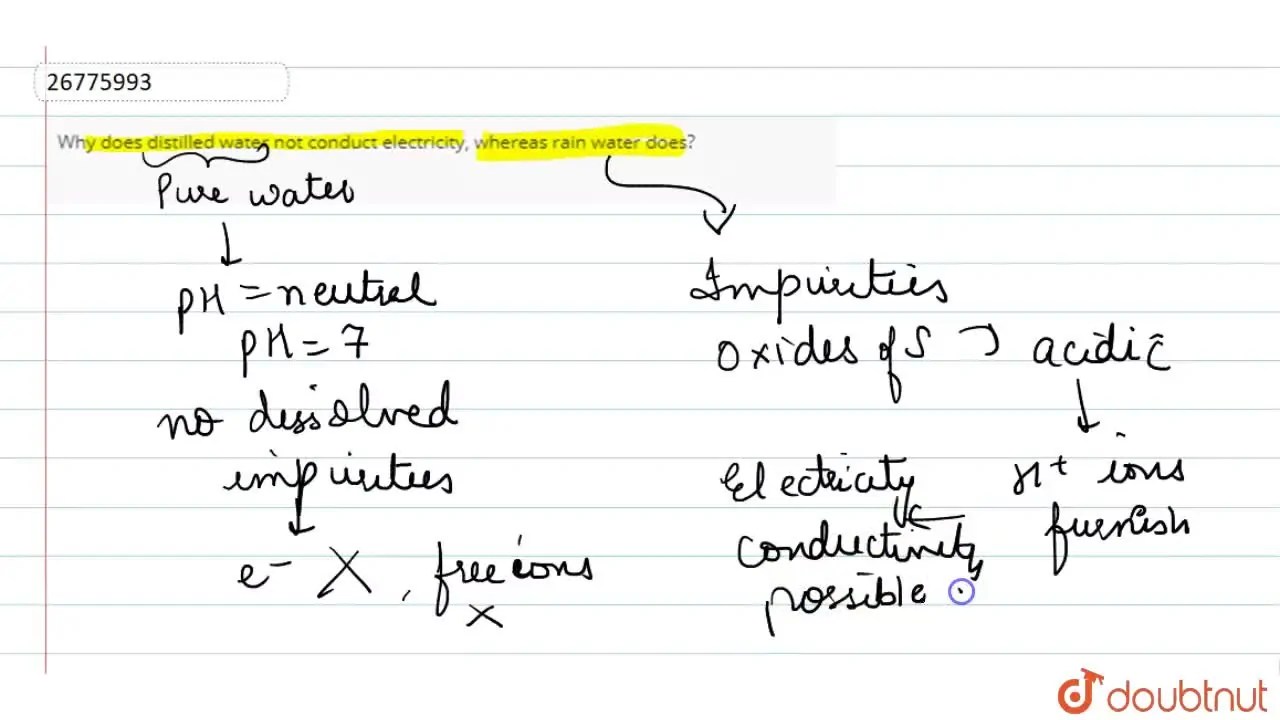 26775993
Why does distilled water not conduct electricity, whereas rain water does?
Pure water
pH = neutral
pH = 7
no dissolved
impurities
e⁻ X, free ions
X
Impurities
oxides of S
acidic
H⁺ ions
furnish
Electricity
conductivity
possible
doubtnut